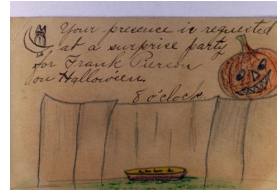 Your presence is requested
at a surprise party
for Frank Pierson
on Hallowe'en.
8 o'clock.